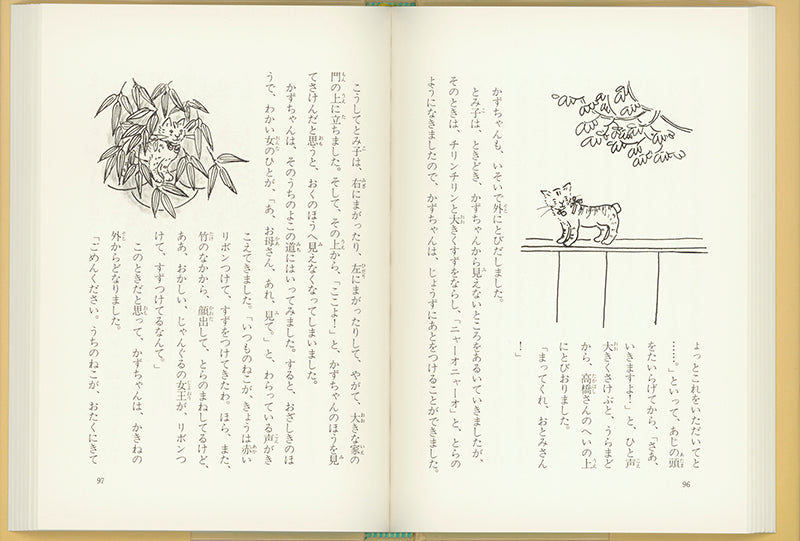 ょっとこれをいただいてと
……。」といって、あじの頭
をたいらげてから、「さあ、
いきますよ！」と、ひと声
大きくさけぶと、うらまど
から、高橋さんのへいの上
にとびおりました。
「まってくれ、おとみさん
！」
かずちゃんも、いそいで外にとびだしました。
とみ子は、ときどき、かずちゃんから見えないところをあるいていきましたが、
そのときは、チリンチリンと大きくすずをならし、「ニャーオニャーオ」と、とらの
ようになきましたので、かずちゃんは、じょうずにあとをつけることができました。
96
こうしてとみ子は、右にまがったり、左にまがったりして、やがて、大きな家の
門の上に立ちました。そして、その上から、「ここよ！」と、かずちゃんのほうを見
てさけんだと思うと、おくのほうへ見えなくなってしまいました。
かずちゃんは、そのうちのよこの道にはいってみました。すると、おざしきのほ
うで、わかい女のひとが、「あ、お母さん、あれ、見て。」と、わらっている声がき
こえてきました。「いつものねこが、きょうは赤い
リボンつけて、すずをつけてきたわ。ほら、また、
竹のなかから、顔出して、とらのまねしてるけど、
ああ、おかしい、じゃんぐるの女王が、リボンつ
けて、すずつけてるなんて。」
このときだと思って、かずちゃんは、かきねの
外からどなりました。
「ごめんください。うちのねこが、おたくにきて
97